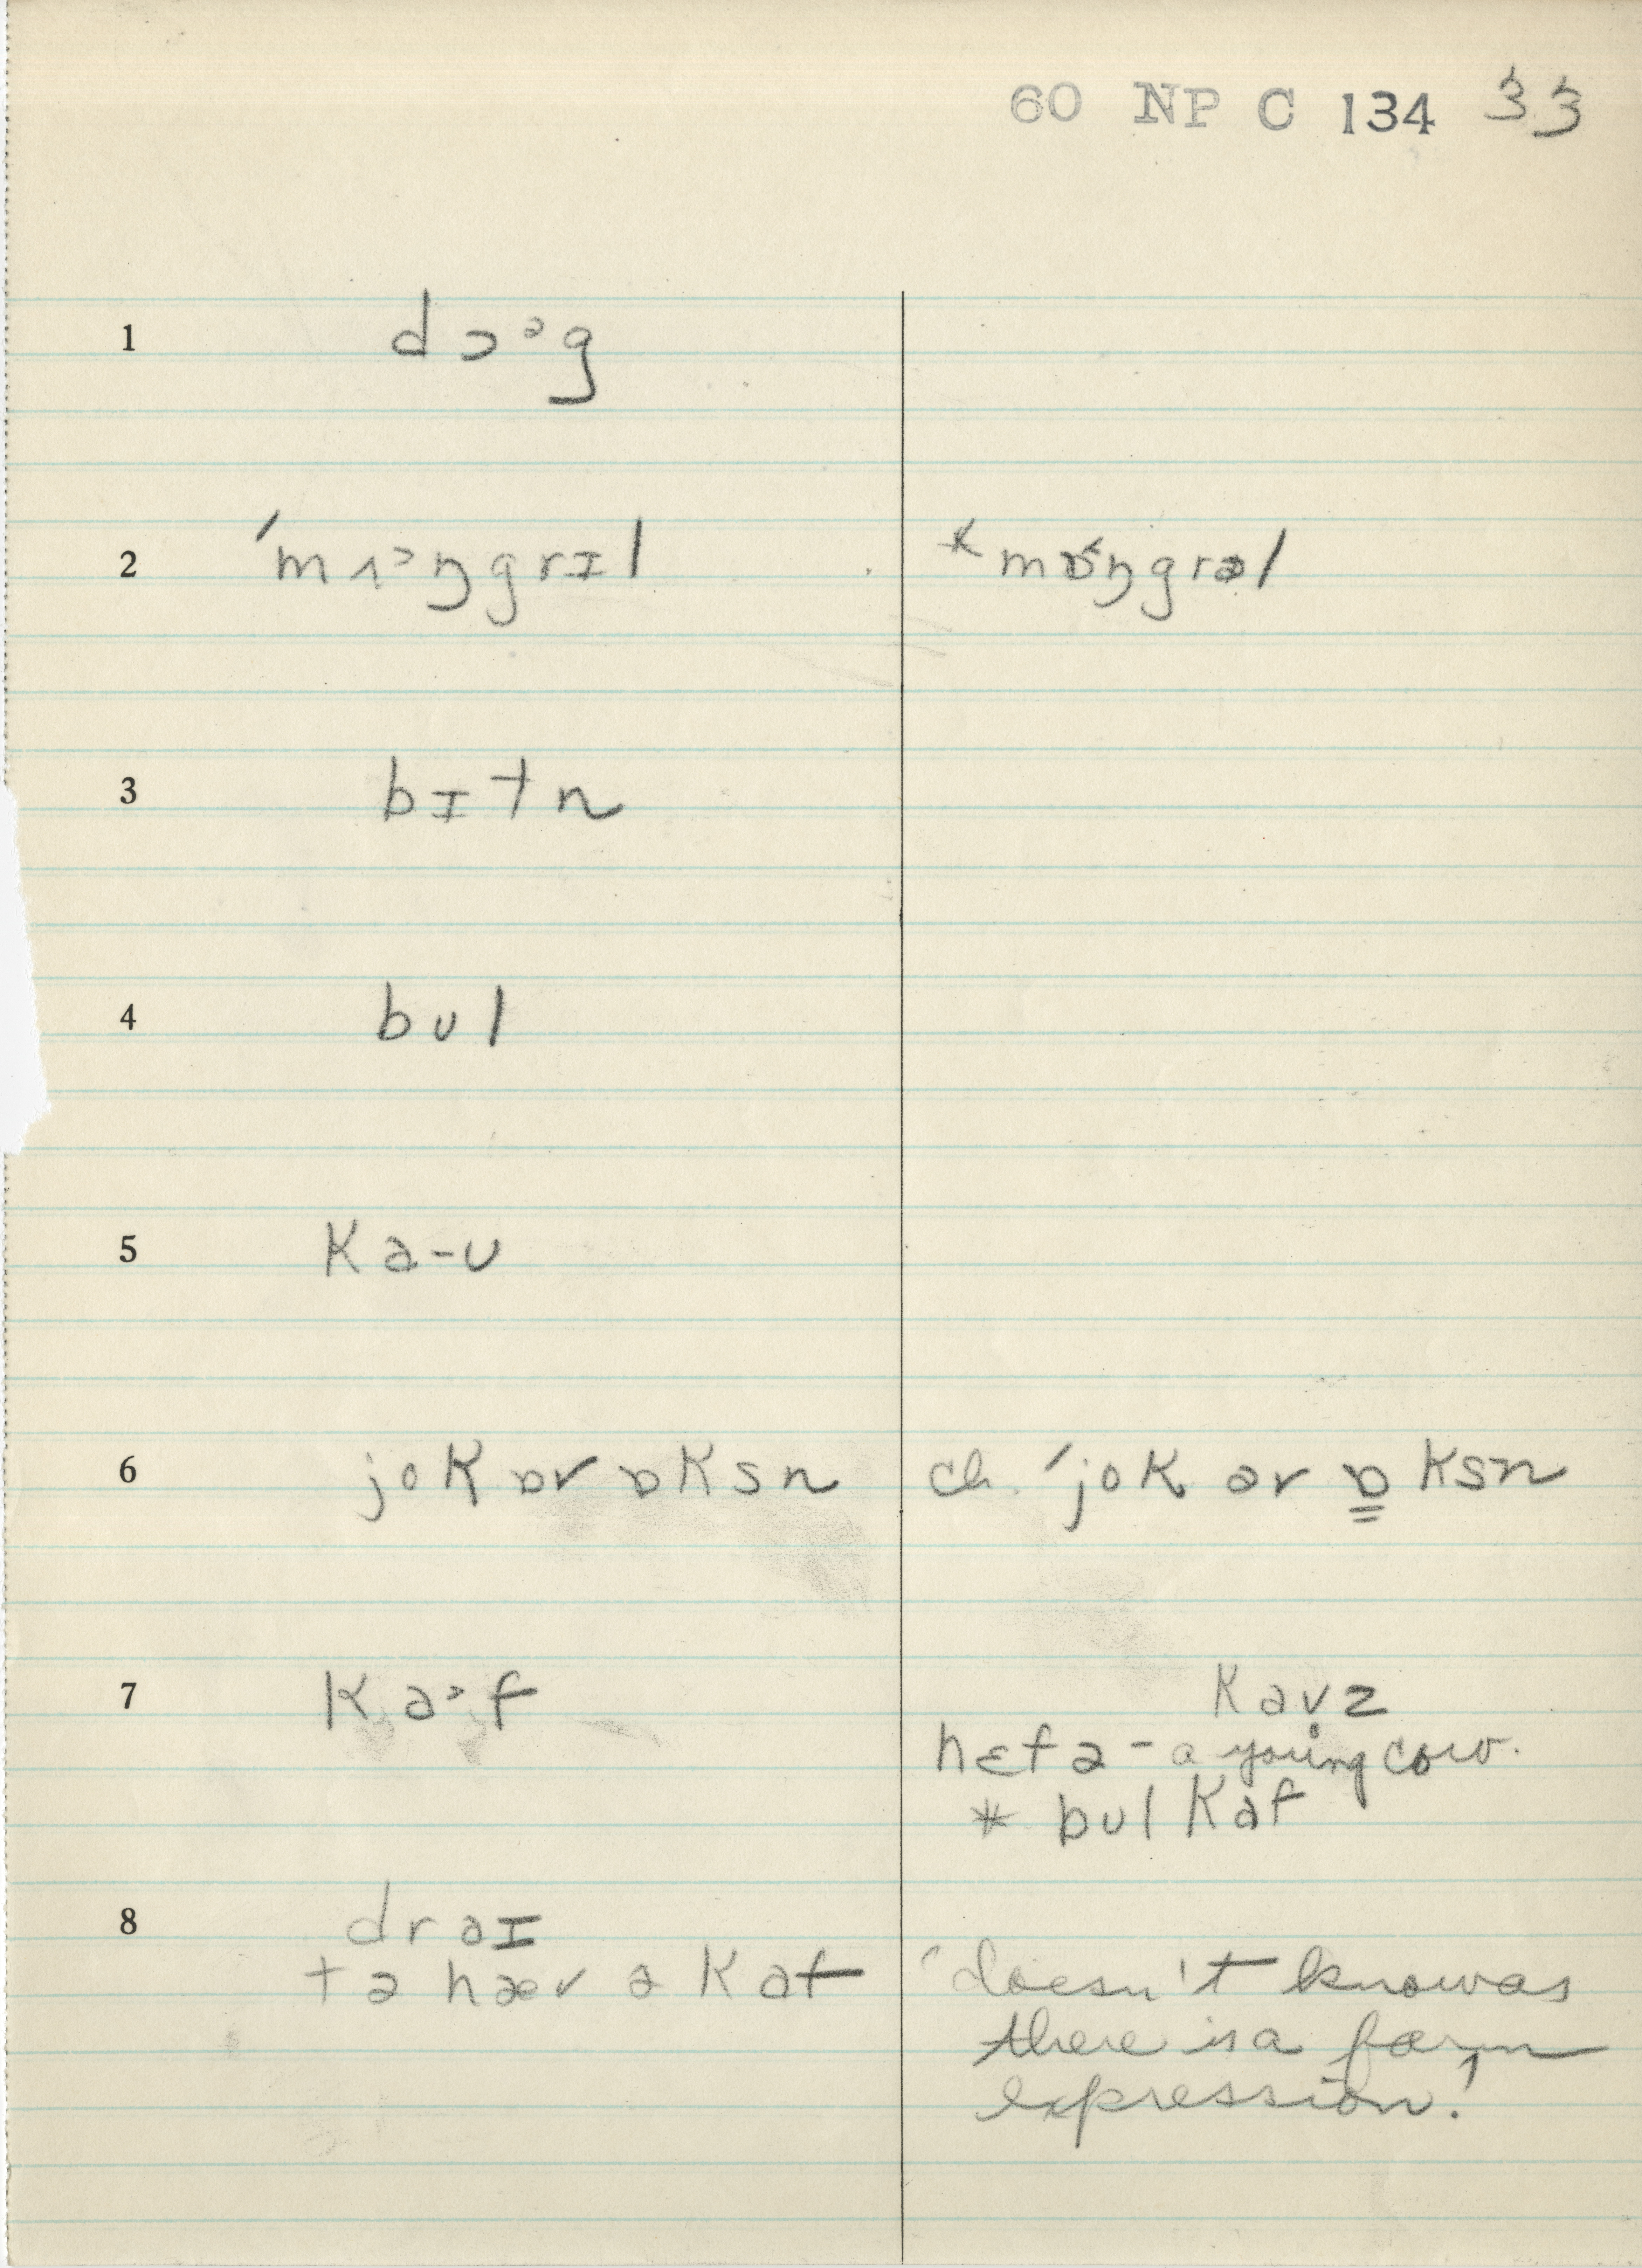 60 NP C 134 33
1 dɔᵊg
2 ˈmʌ˃ŋgrɪl *mɒ˂ŋgrəl
3 bɪtn
4 bʊl
5 ka-ʊ
6 jok ɒr ɒksn ch. ˈjok ər ɒ̳ksn
7 ka˃f kavz
hɛfə - a young cow.
* bʊl kaf
8 draɪ
tə hæv ə kaf 'doesn't know as
there is a farm
expression!'